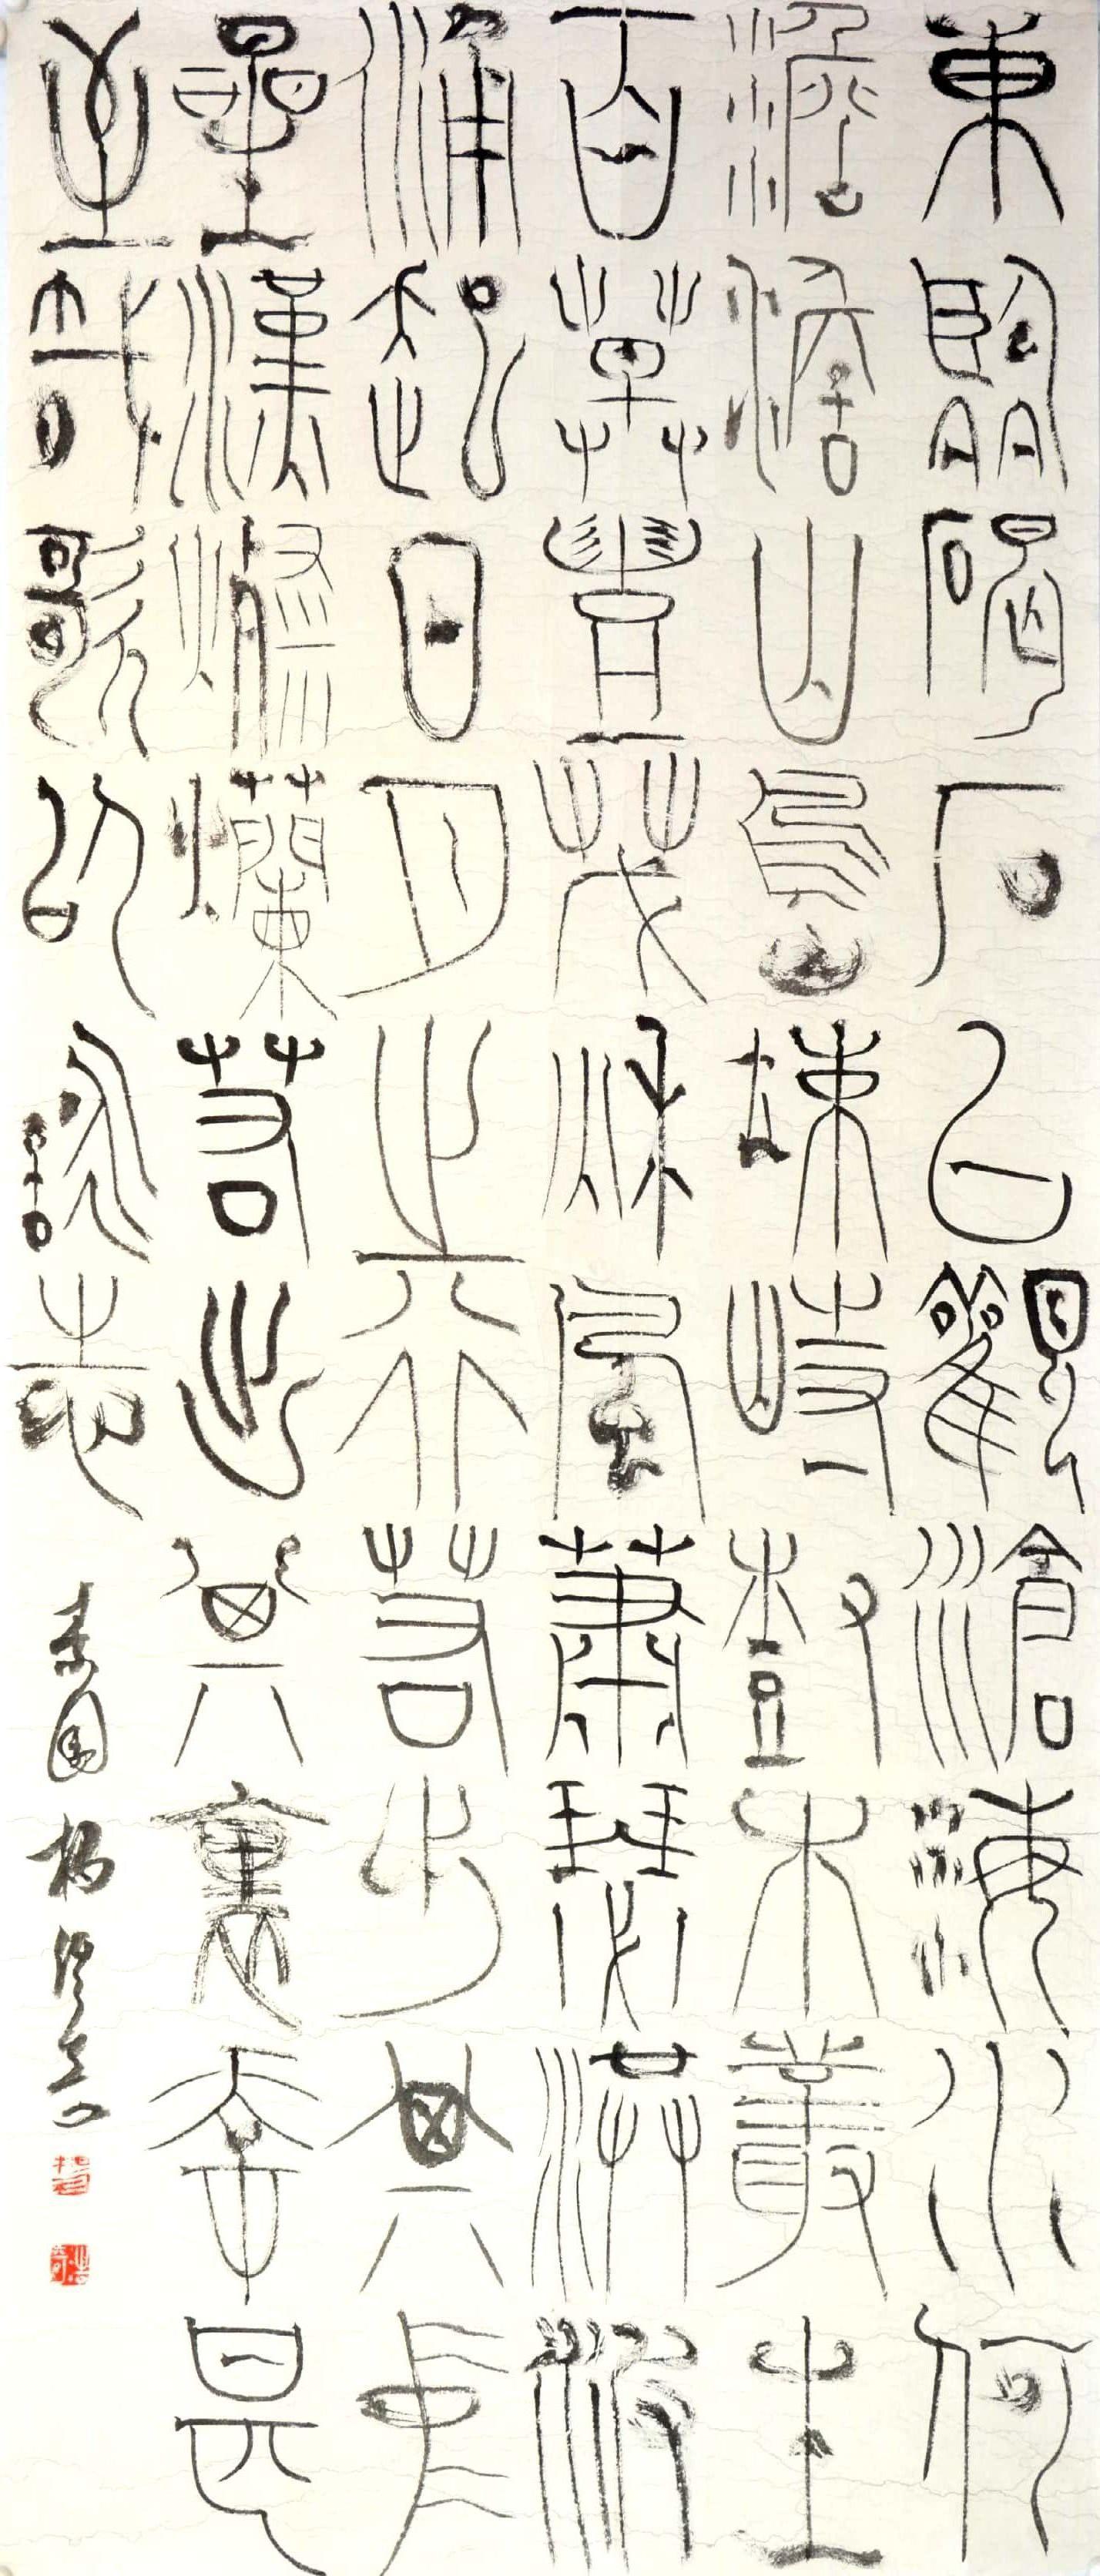 東臨碣石以觀滄海水何
澹澹山島竦峙樹木叢生
百草豐茂秋風蕭瑟洪波
涌起日月之行若出其中
星漢燦爛若出其裏幸甚
至哉歌以詠志